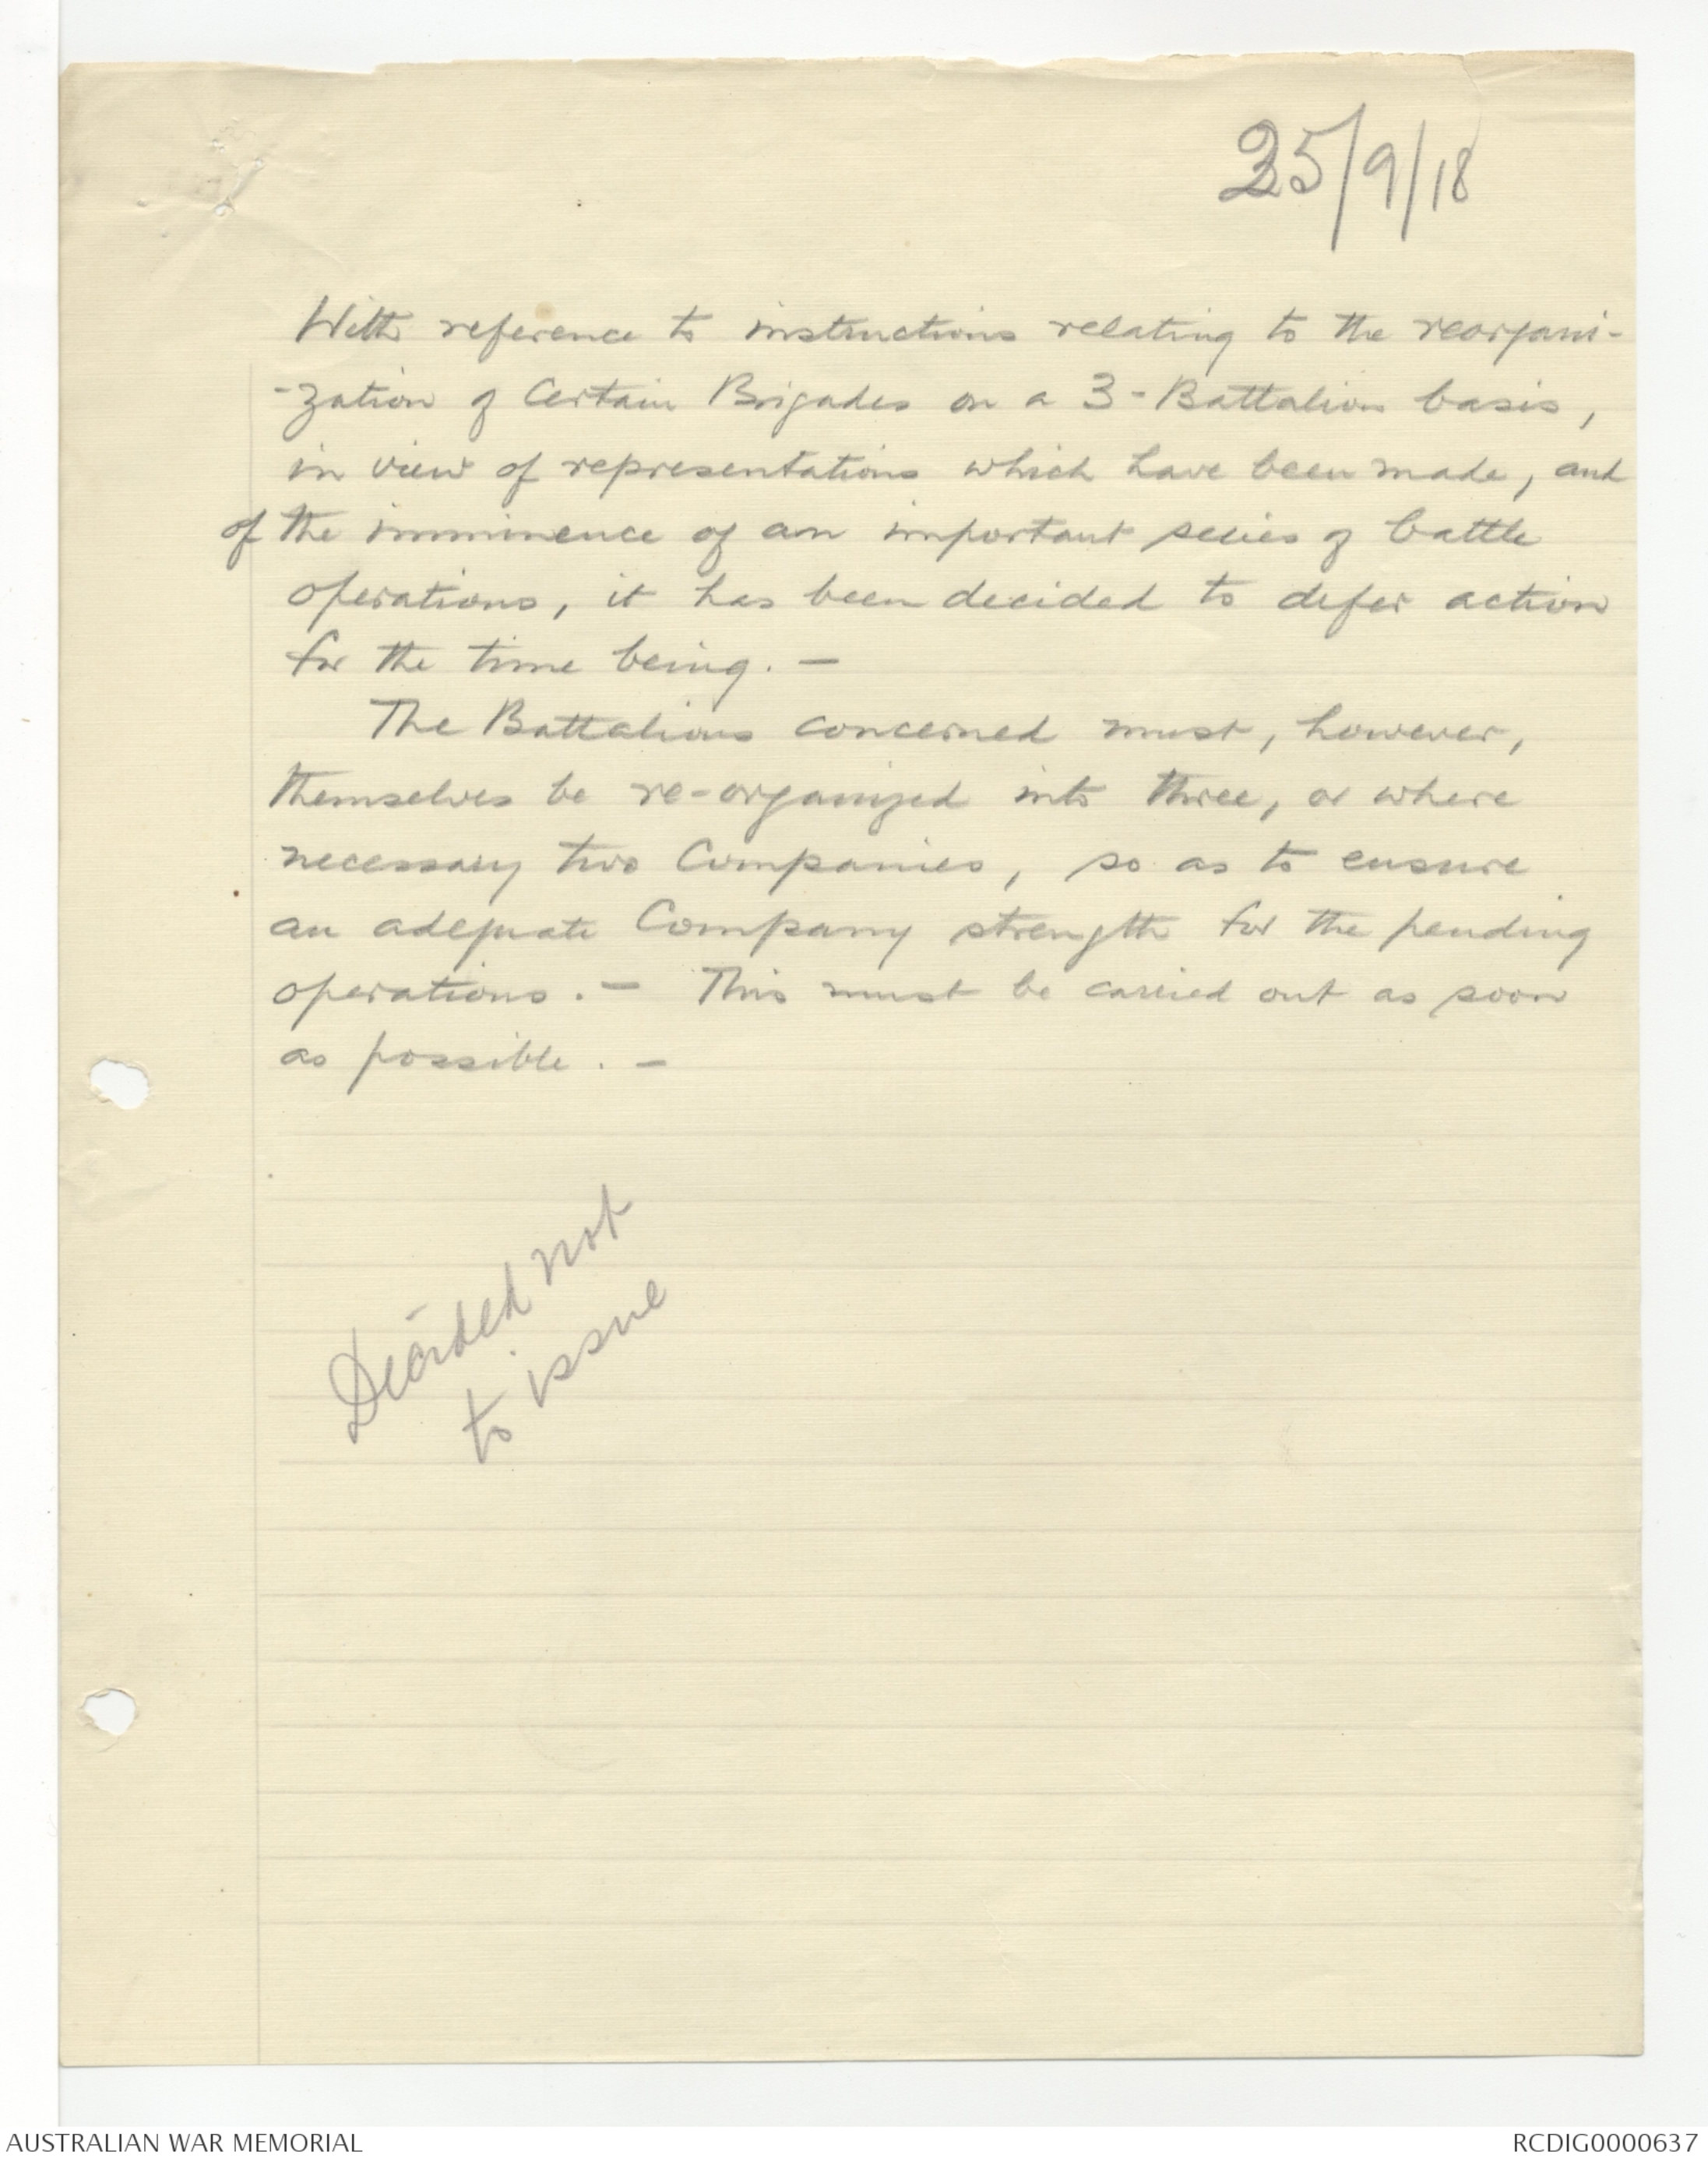 25/9/18
With reference to instructions relating to the reorgani-
-zation of Certain Brigades on a 3-Battalion basis,
in view of representations which have been made, and
of the imminence of an important series of battle
operations, it has been decided to defer action
for the time being. —
The Battalions concerned must, however,
themselves be re-organized into three, or where
necessary two Companies, so as to ensure
an adequate Company strength for the pending
operations. — This must be carried out as soon
as possible. —
Decided not
to issue
AUSTRALIAN WAR MEMORIAL
RCDIG0000637